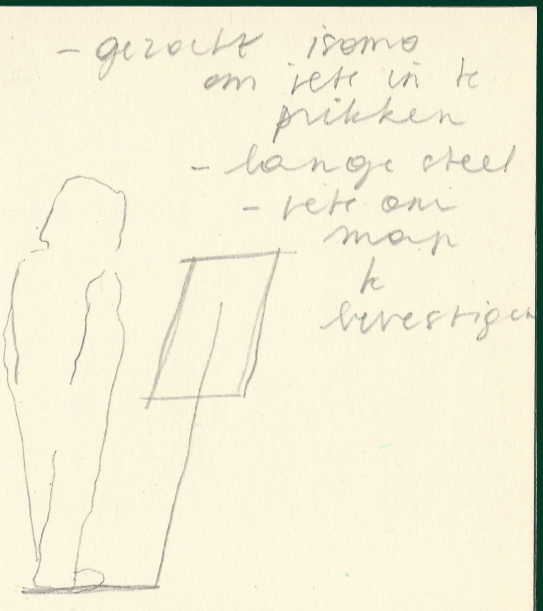 - gezocht isomo
om iets in te
prikken
- lange steel
- iets om
map
te
bevestigen